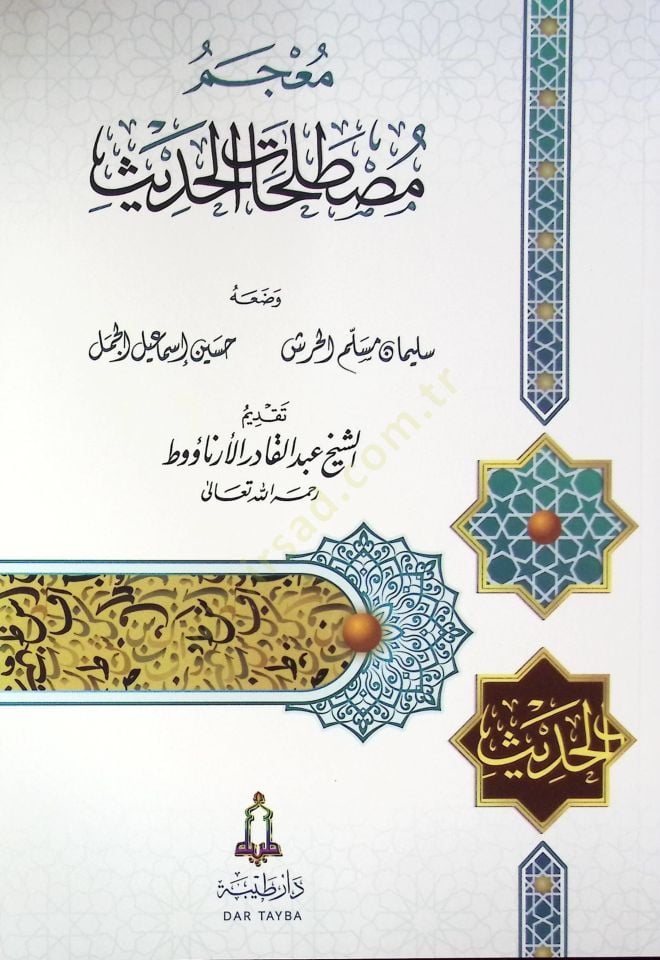 مُعْجَمُ
مُصْطَلَحَاتِ الحَدِيثِ
وَضَعَهُ
سليمان مسلّم الحرش حسين إسماعيل الجمل
تَقْدِيمُ
الشيخ عبد القادر الأرناؤوط
رحمه الله تعالى
الحَدِيثِ
دَار طَيبَة
DAR TAYBA
irsad.com.tr